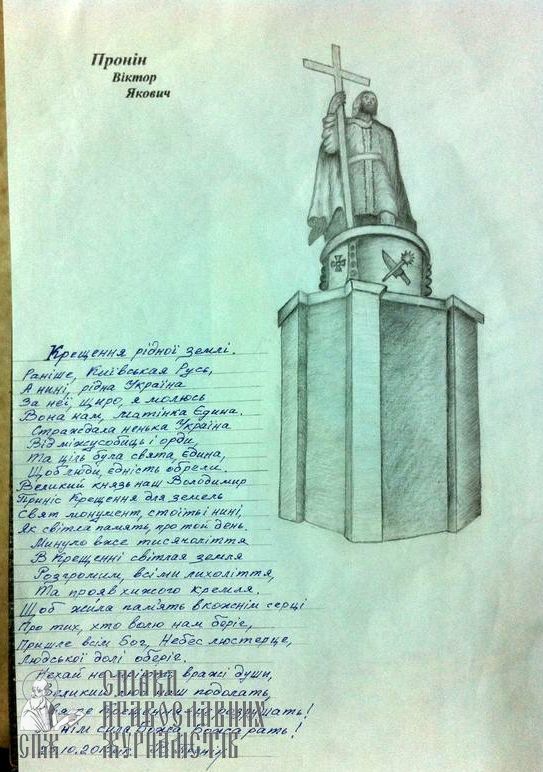 Пронін
Віктор
Якович
Крещення рідної землі.
Раніше, Київськая Русь,
А нині, рідна Україна
За неї, щиро, я молюсь
Вона нам, матінка Єдина.
Страждала ненька Україна
Від міжусобиць і орди,
Та ціль була свята, єдина,
Щоб люди, єдність обрели.
Великий князь наш Володимир
Приніс Крещення для земель
Свят монумент, стоїть і нині,
Як світла память, про той день.
Минуло вже тисячоліття
В Крещенні світлая земля
Розгромим, всі ми лихоліття,
Та прояв хижого кремля.
Щоб жила память в кожнім серці
Про тих, хто волю нам беріг,
Пришле всім Бог, Небес люстерце,
Людської долі оберіг.
Нехай не вражі душі,
Великий наш подолать,
!
нім сила Божа, Божа рать!
.10.20
СПІЛКА
ПРАВОСЛАВНИХ
СПЖ ЖУРНАЛІСТІВ